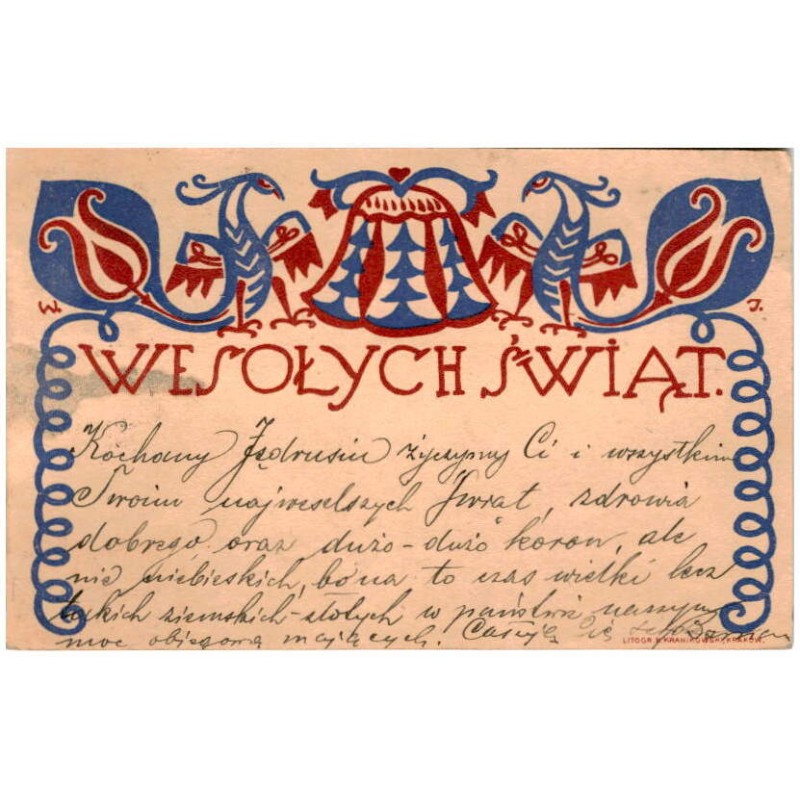 W. J.
WESOŁYCH ŚWIĄT.
Kochany Jędrusiu życzymy Ci i wszystkim
Twoim najweselszych Świąt, zdrowia
dobrego, oraz dużo-dużo koron, ale
nie niebieskich, bo na to czas wielki lecz
takich ziemskich-złotych w państwie naszym
moc obiegową mających. Całuję Cię
LITOGR. K. KRANIKOWSKI, KRAKÓW.